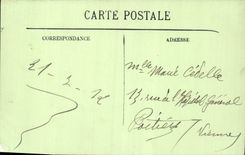 CARTE POSTALE
CORRESPONDANCE
ADRESSE
21-2-
Mlle Marie
13, rue de l'Hôpital Général
Poitiers
Vienne